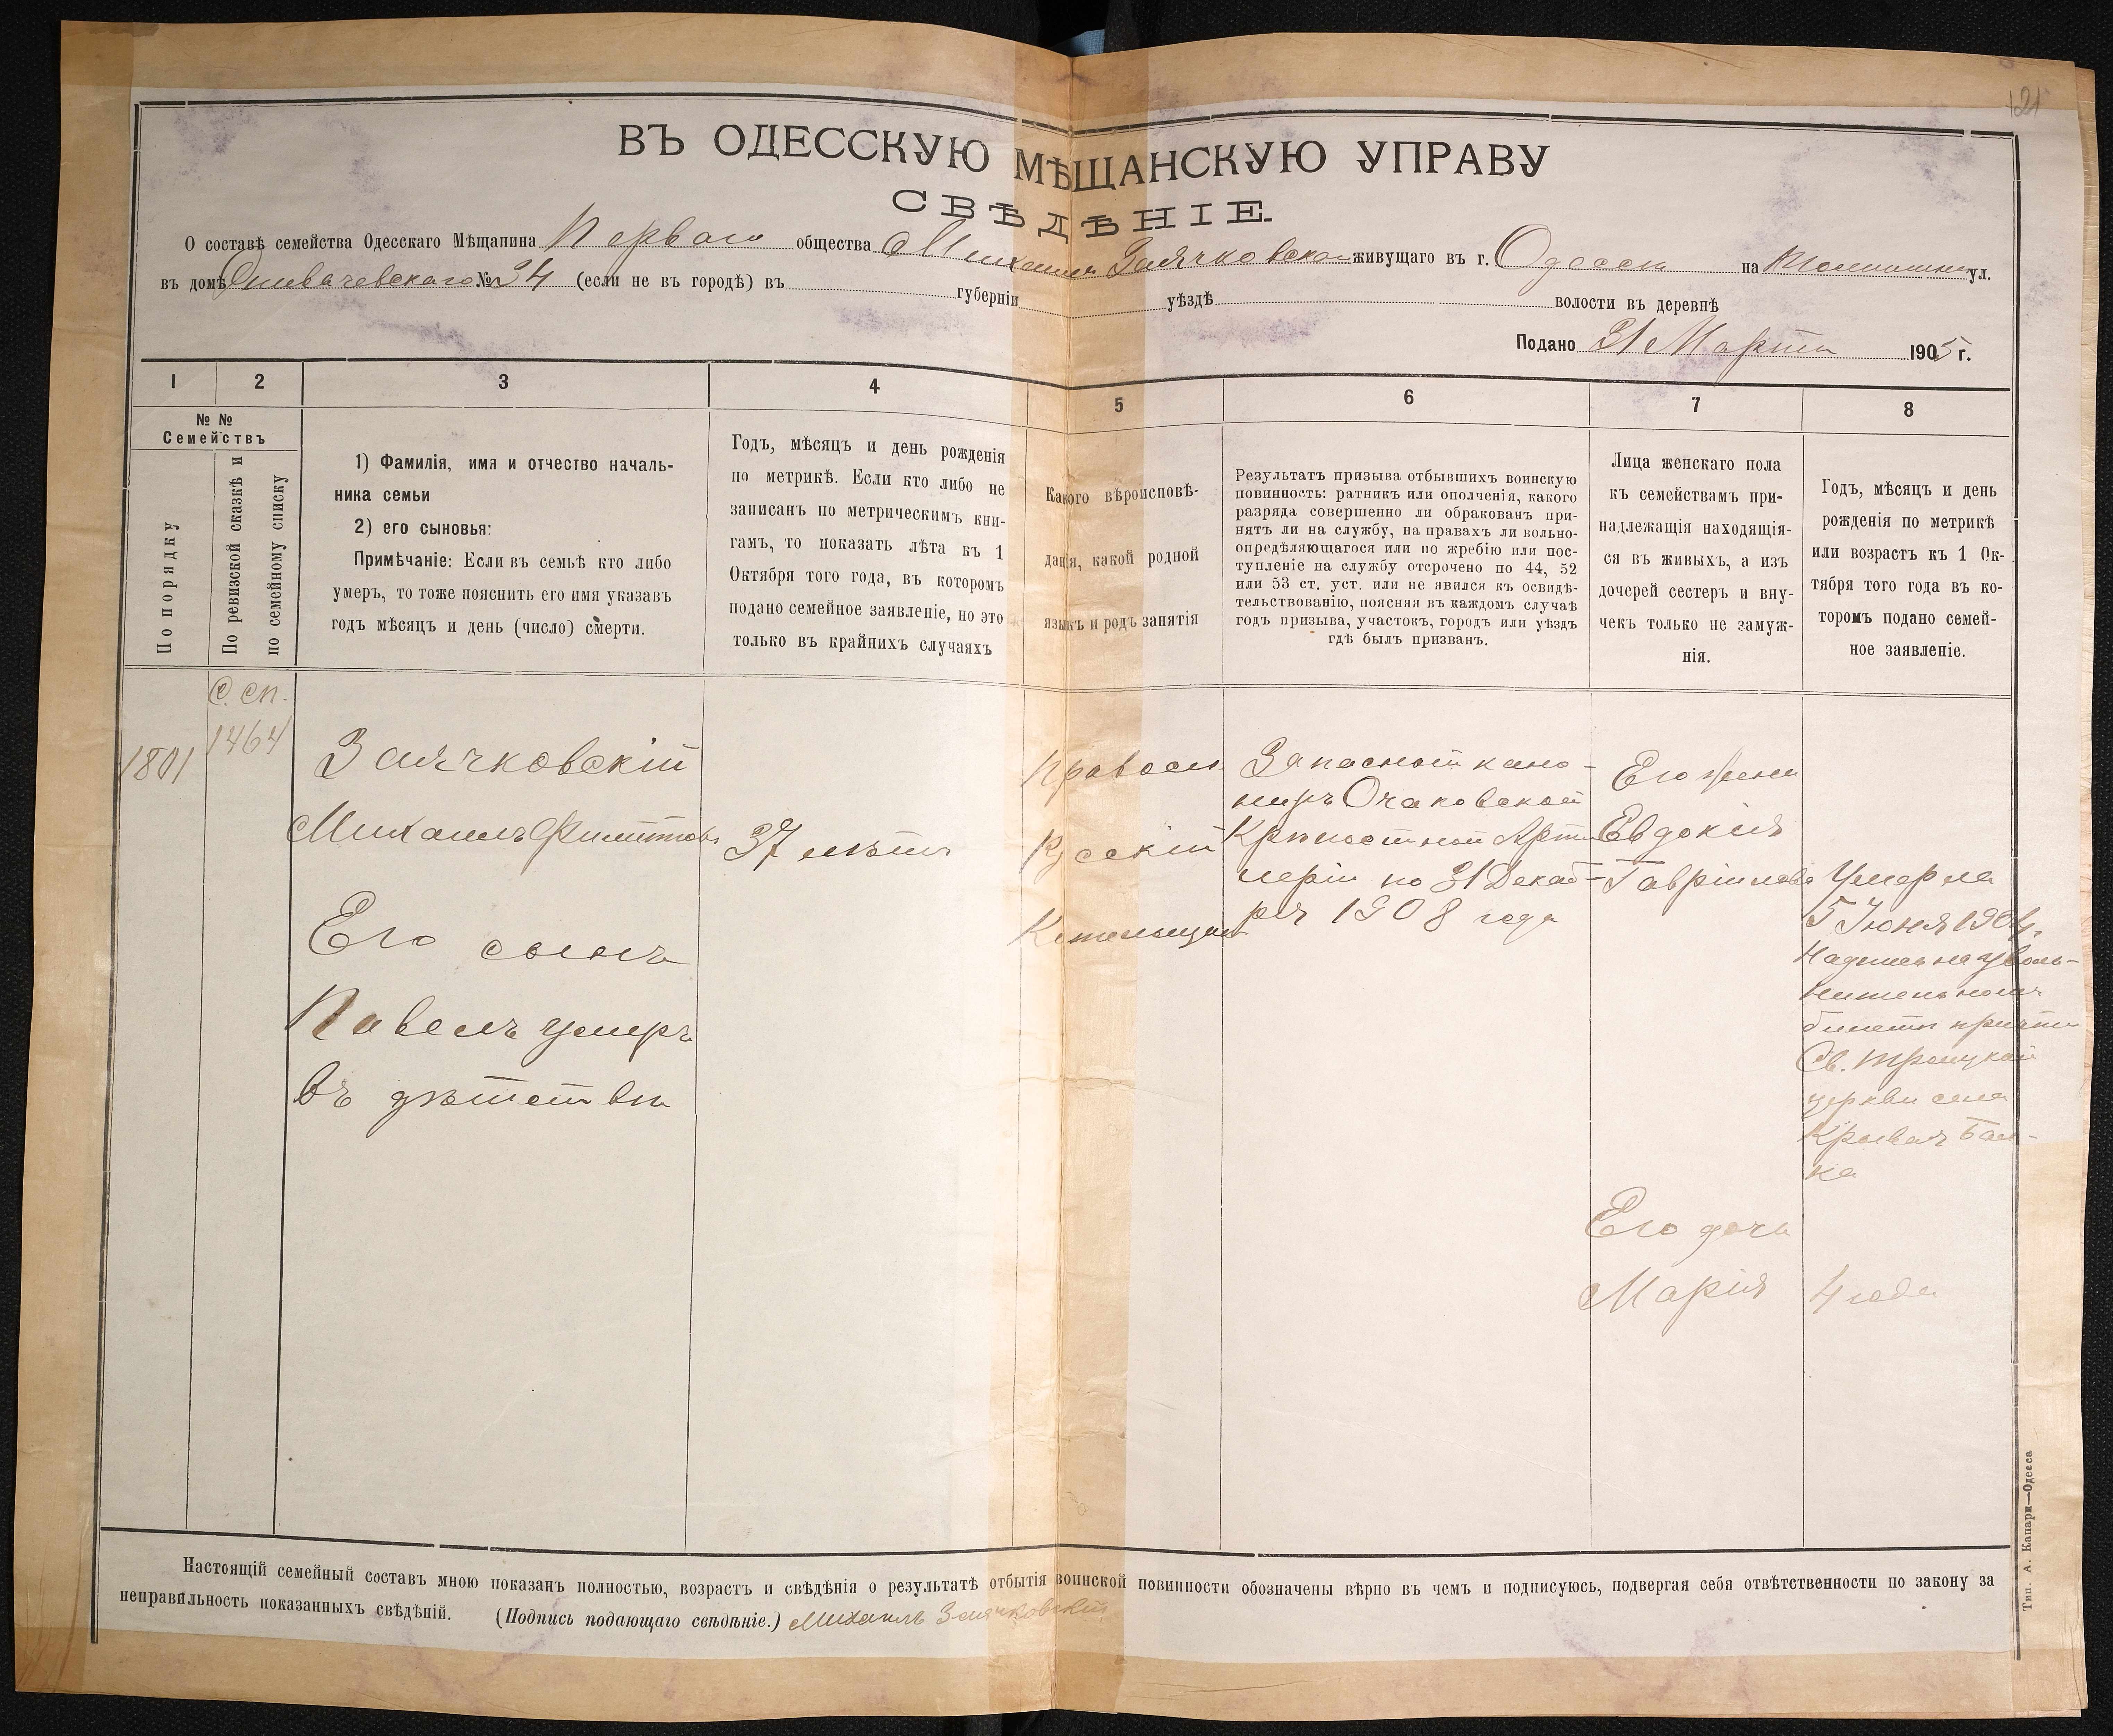 121
ВЪ ОДЕССКУЮ МѢЩАНСКУЮ УПРАВУ
СВѢДѢНІЕ.
О составѣ семейства Одесскаго Мѣщанина Перваго общества Михаила Заячковскаго живущаго въ г. Одессѣ на ул.
въ домѣ № 34 (если не въ городѣ) въ губерніи уѣздѣ волости въ деревнѣ
Подано 31 Марта 1905 г.
1 2 3 4 5 6 7 8
№ №
Семействъ
По порядку
По ревизской сказкѣ и
по семейному списку
1) Фамилія, имя и отчество началь-
ника семьи
2) его сыновья:
Примѣчаніе: Если въ семьѣ кто либо
умеръ, то тоже пояснить его имя указавъ
годъ мѣсяцъ и день (число) смерти.
Годъ, мѣсяцъ и день рожденія
по метрикѣ. Если кто либо не
записанъ по метрическимъ кни-
гамъ, то показать лѣта къ 1
Октября того года, въ которомъ
подано семейное заявленіе, но это
только въ крайнихъ случаяхъ
Какого вѣроисповѣ-
данія, какой родной
языкъ и родъ занятія
Результатъ призыва отбывшихъ воинскую
повинность: ратникъ или ополченія, какого
разряда совершенно ли обракованъ при-
нятъ ли на службу, на правахъ ли вольно-
опредѣляющагося или по жребію или пос-
тупленіе на службу отсрочено по 44, 52
или 53 ст. уст. или не явился къ освидѣ-
тельствованію, поясняя въ каждомъ случаѣ
годъ призыва, участокъ, городъ или уѣздъ
гдѣ былъ призванъ.
Лица женскаго пола
къ семействамъ при-
надлежащія находящія-
ся въ живыхъ, а изъ
дочерей сестеръ и вну-
чекъ только не замуж-
нія.
Годъ, мѣсяцъ и день
рожденія по метрикѣ
или возрастъ къ 1 Ок-
тября того года въ ко-
торомъ подано семей-
ное заявленіе.
1801
С. сп.
1464
Заячковскій
Михаилъ Филипповъ
Его сынъ
Павелъ умеръ
въ дѣтствѣ
37 лѣтъ
Правосл.
Русскій
Котельщикъ
Запасной кано-
ниръ Очаковской
Крѣпостной Арти
леріи по 31 Декаб-
ря 1908 года
Его жена
Евдокія
Гавріилова
Умерла
5 Июня 1904 г.
Надпись на уволь-
нительномъ
билетѣ причта
Св. Троицкой
церкви села
Кривая Бал-
ка
Его дочь
Марія
4 года
Настоящій семейный составъ мною показанъ полностью, возрастъ и свѣдѣнія о результатѣ отбытія воинской повинности обозначены вѣрно въ чемъ и подписуюсь, подвергая себя отвѣтственности по закону за
неправильность показанныхъ свѣдѣній. (Подпись подающаго свѣдѣніе.) Михаилъ Заячковскій
Тип. А. Капари—Одесса